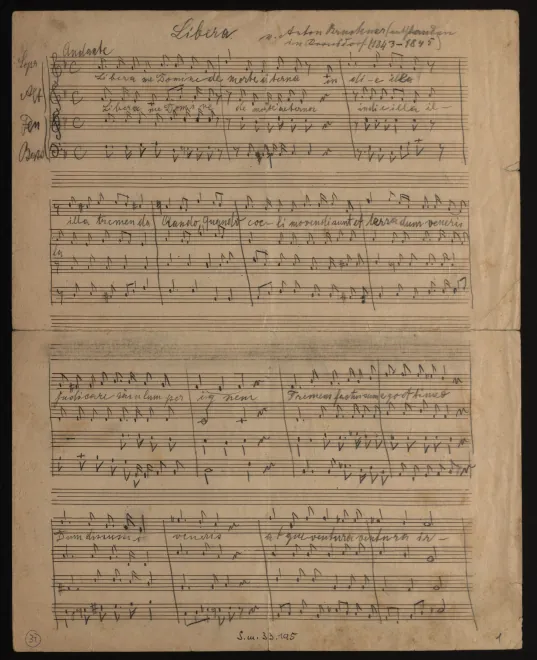 Libera
v. Anton Bruckner (entstanden
in Kronstorf (1843–1845)
Andante
Sopr
Alt
Ten
Bass
Libera me Domine de morte aeterna in di-e illa
Libera me Domine de morte aeterna in die illa il-
illa tremenda Quando Quando coe-li movendi sunt et terra dum veneris
judicare saeculum per ig nem Tremens factus sum ego et timeo
Dum discussio veneris atque ventura ventura ir-
35
S.m. 33.195
1